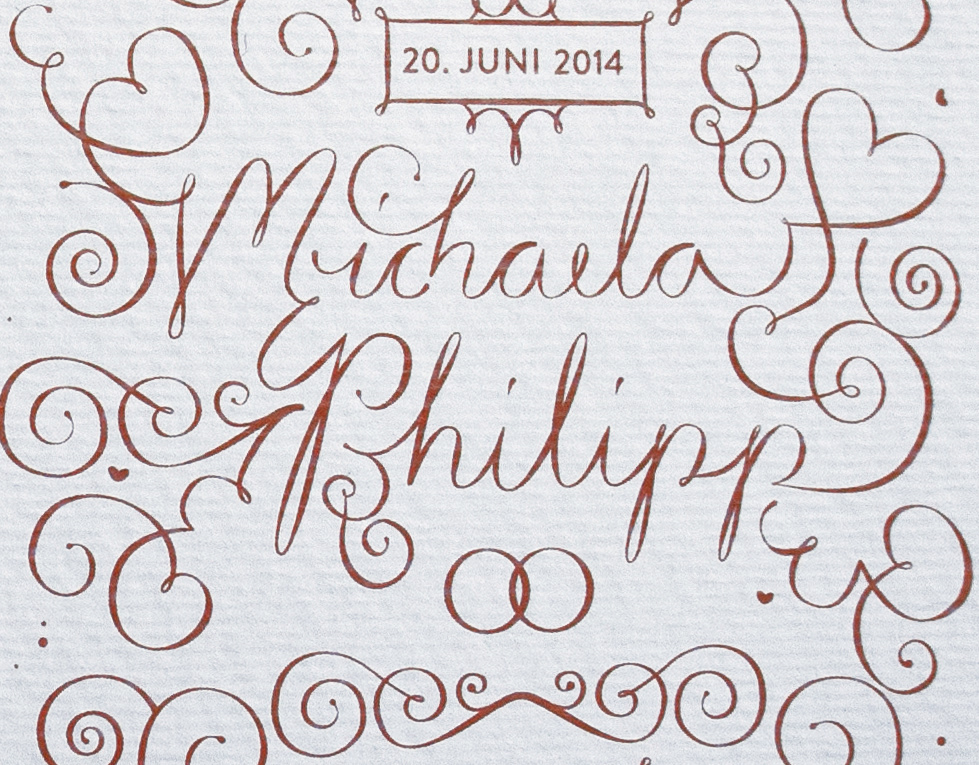 20. JUNI 2014
Michaela
Philipp